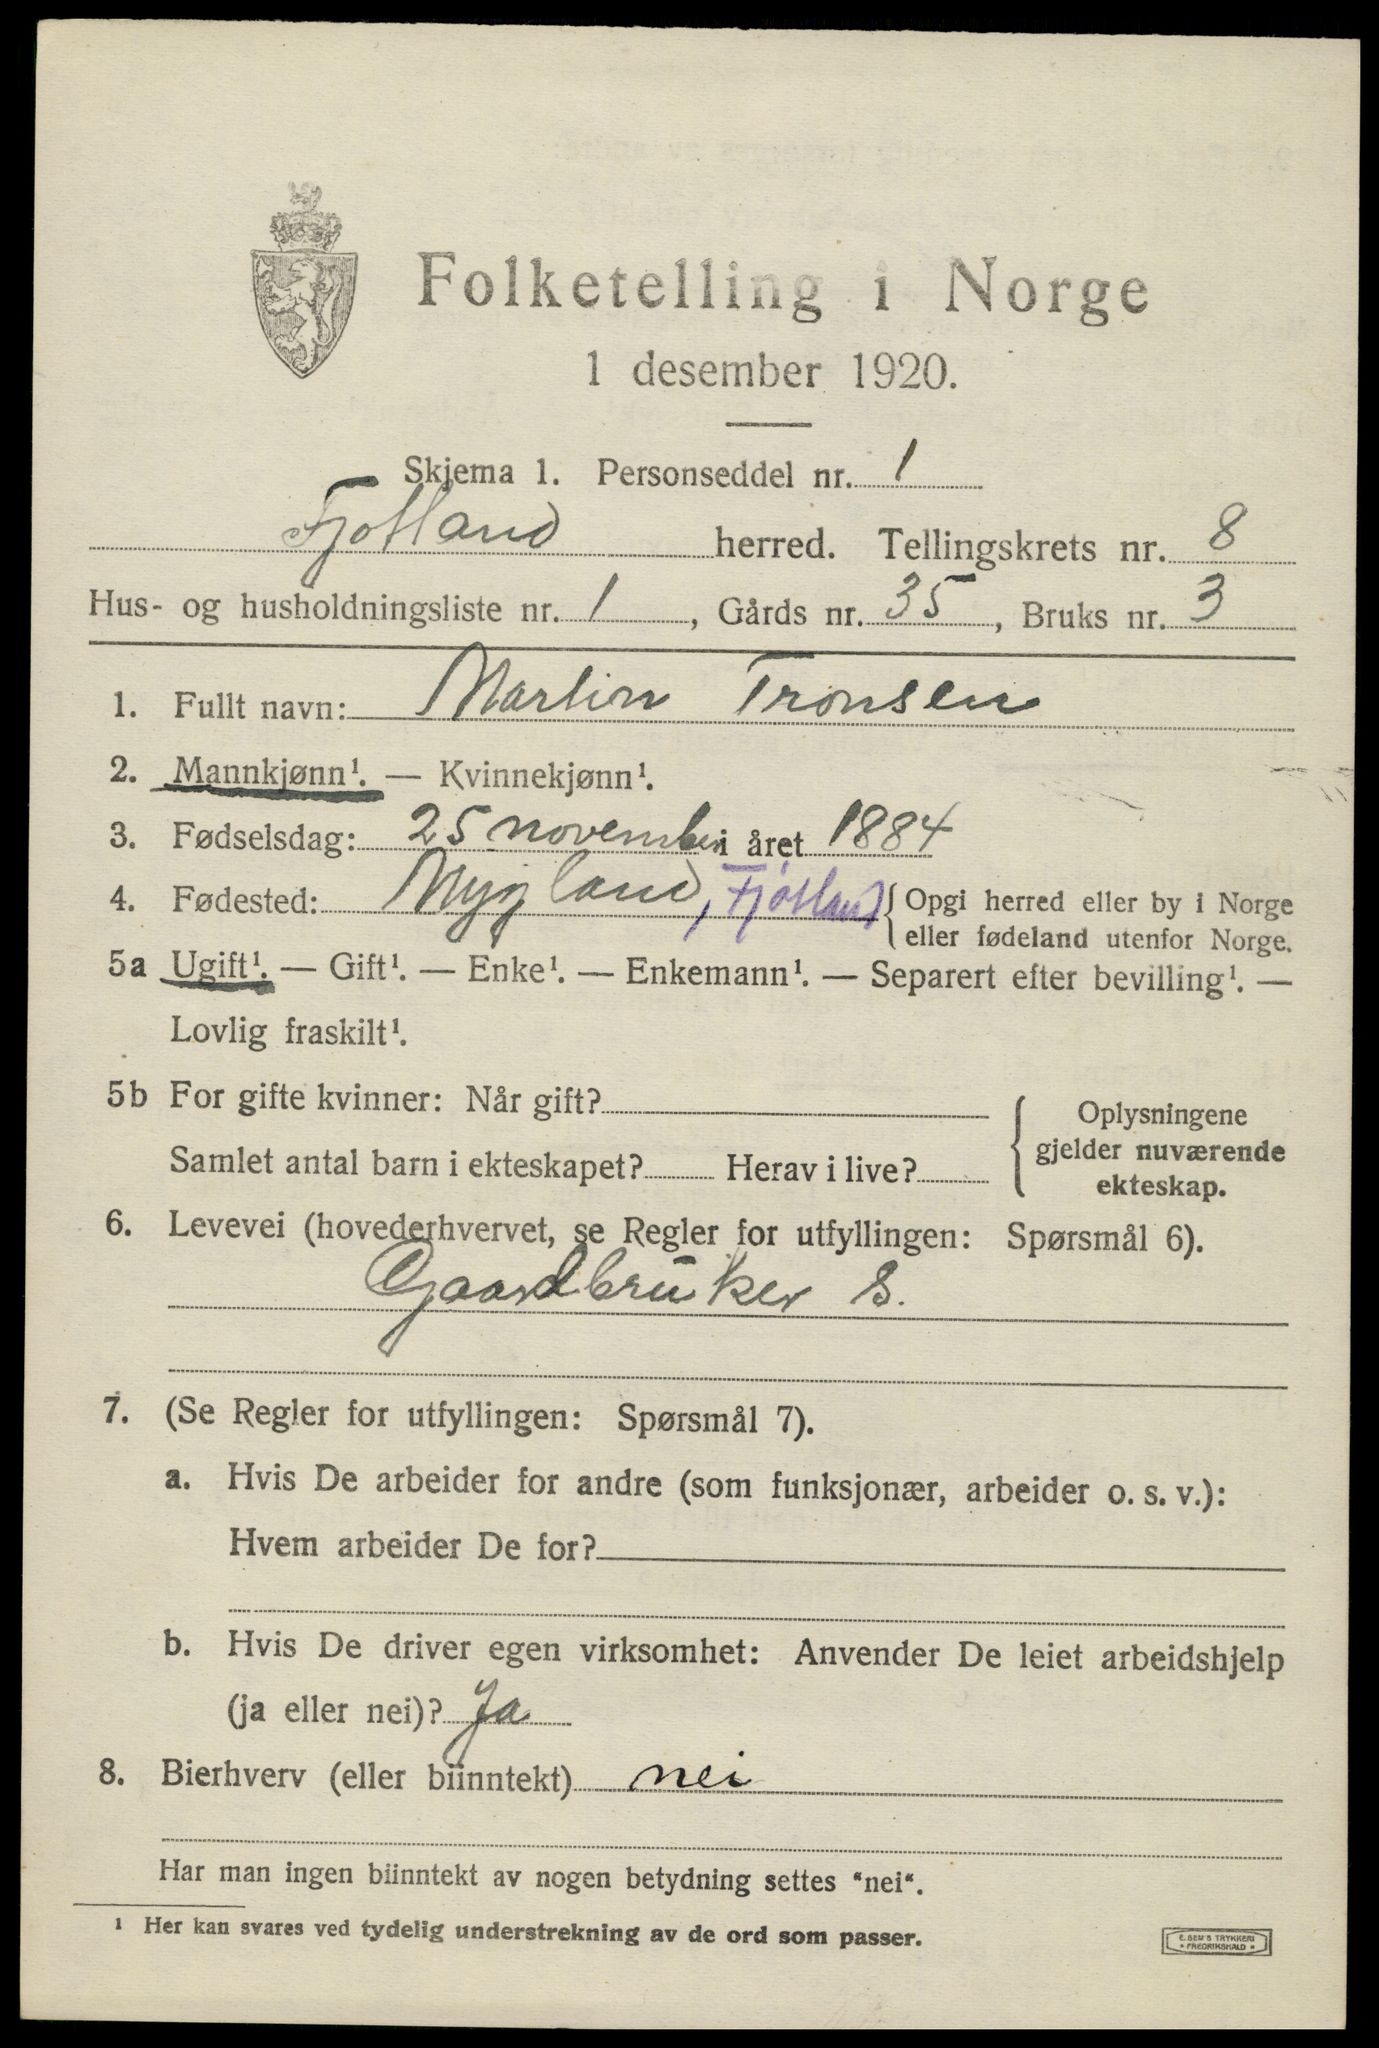 Folketelling i Norge
1 desember 1920.
Skjema 1. Personseddel nr. 1
Fjotland herred. Tellingskrets nr. 8
Hus- og husholdningsliste nr. 1, Gårds nr. 35, Bruks nr. 3
1. Fullt navn: Martin Tronsen
2. Mannkjønn¹. — Kvinnekjønn¹.
3. Fødselsdag: 25 november i året 1884
4. Fødested: Mygland, Fjotland { Opgi herred eller by i Norge
eller fødeland utenfor Norge.
5a Ugift¹. — Gift¹. — Enke¹. — Enkemann¹. — Separert efter bevilling¹. —
Lovlig fraskilt¹.
5b For gifte kvinner: Når gift?
Samlet antal barn i ekteskapet? Herav i live?
{ Oplysningene
gjelder nuværende
ekteskap.
6. Levevei (hovederhvervet, se Regler for utfyllingen: Spørsmål 6).
Gaardbruker S.
7. (Se Regler for utfyllingen: Spørsmål 7).
a. Hvis De arbeider for andre (som funksjonær, arbeider o. s. v.):
Hvem arbeider De for?
b. Hvis De driver egen virksomhet: Anvender De leiet arbeidshjelp
(ja eller nei)? Ja
8. Bierhverv (eller biinntekt) nei
Har man ingen biinntekt av nogen betydning settes "nei".
¹ Her kan svares ved tydelig understrekning av de ord som passer.
E. SEM'S TRYKKERI
* FREDRIKSHALD *